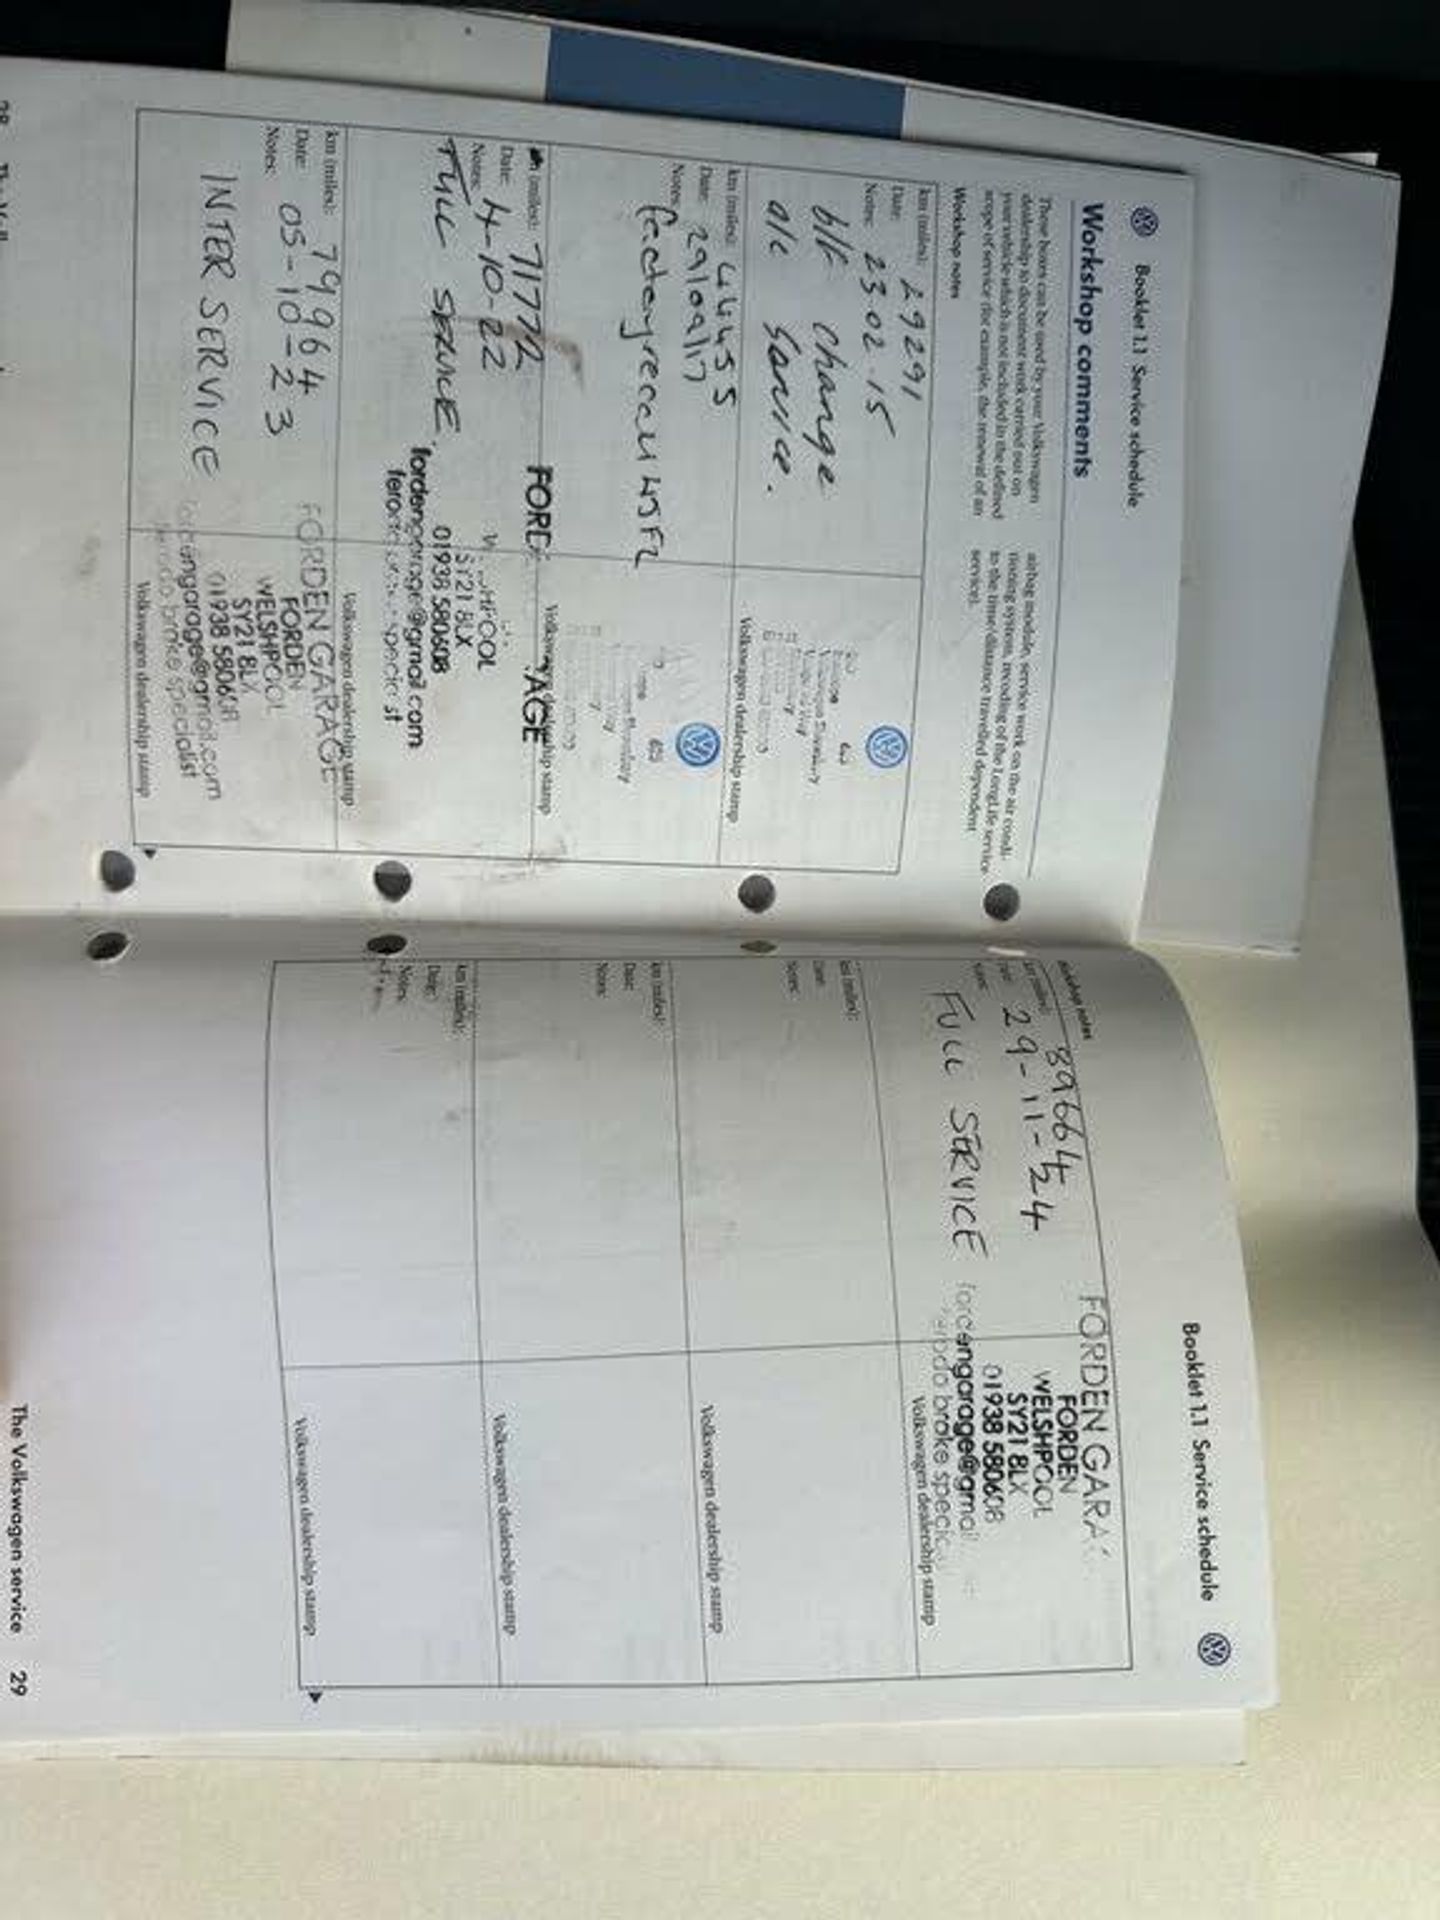 Booklet 1.1 Service schedule
Workshop comments
These boxes can be used by your Volkswagen
dealership to document work carried out on
your vehicle which is not included in the defined
scope of service (for example, the renewal of an
airbag module, service work on the air condi-
tioning system, recoding of the LongLife service
to the time/distance travelled dependent
service).
Workshop notes
km (miles): 29291
Date: 23.02.15
Notes: b/f change
a/c service.
Volkswagen dealership stamp
km (miles): 44455
Date: 290917
Notes: factory recall
Volkswagen dealership stamp
(miles): 71772
Date: 4-10-22
Notes: FULL SERVICE
SY21 8LX
01938 580608
fordengarage@gmail.com
Volkswagen dealership stamp
km (miles): 79964
Date: 05-10-23
Notes: INTER SERVICE
FORDEN GARAGE
FORDEN
WELSHPOOL
SY21 8LX
01938 580608
fordengarage@gmail.com
ferodo brake specialist
Volkswagen dealership stamp
Booklet 1.1 Service schedule
89664
29-11-24
FULL SERVICE
FORDEN GARA
FORDEN
WELSHPOOL
SY21 8LX
01938 580608
fordengarage@gmail
Volkswagen dealership stamp
km (miles):
Date:
Notes:
Volkswagen dealership stamp
km (miles):
Date:
Notes:
Volkswagen dealership stamp
km (miles):
Date:
Notes:
Volkswagen dealership stamp
The Volkswagen service 29